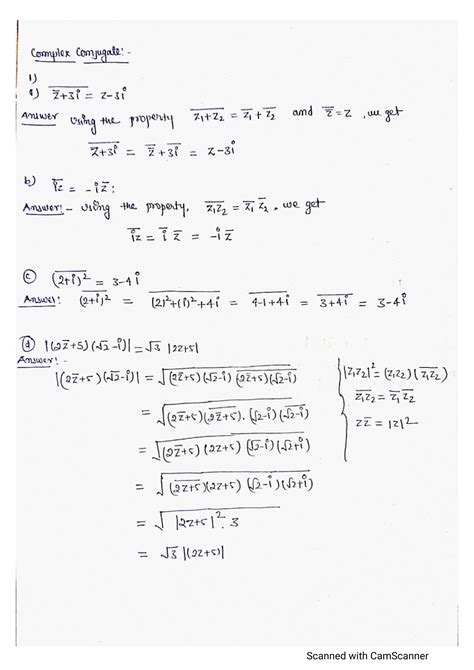 Complex Conjugate:-
1)
a) $\overline{\overline{z}+3i} = z-3i$
Answer Using the property $\overline{z_1+z_2} = \overline{z_1}+\overline{z_2}$ and $\overline{\overline{z}}=z$, we get
$\overline{\overline{z}+3i} = \overline{\overline{z}}+\overline{3i} = z-3i$
b) $\overline{iz} = -i\overline{z}$:
Answer:- Using the property, $\overline{z_1z_2} = \overline{z_1}\,\overline{z_2}$, we get
$\overline{iz} = \overline{i}\,\overline{z} = -i\overline{z}$
c) $\overline{(2+i)^2} = 3-4i$
Answer: $\overline{(2+i)^2} = \overline{(2)^2+(i)^2+4i} = \overline{4-1+4i} = \overline{3+4i} = 3-4i$
d) $|(2\overline{z}+5)(\sqrt{2}-i)| = \sqrt{3}\,|2z+5|$
Answer:-
$|(2\overline{z}+5)(\sqrt{2}-i)| = \sqrt{(2\overline{z}+5)(\sqrt{2}-i)\,\overline{(2\overline{z}+5)(\sqrt{2}-i)}}$
$|z_1z_2|^2 = (z_1z_2)(\overline{z_1z_2})$
$\overline{z_1z_2} = \overline{z_1}\,\overline{z_2}$
$z\overline{z} = |z|^2$
$= \sqrt{(2\overline{z}+5)\overline{(2\overline{z}+5)}\cdot(\sqrt{2}-i)\overline{(\sqrt{2}-i)}}$
$= \sqrt{(2\overline{z}+5)(2z+5)(\sqrt{2}-i)(\sqrt{2}+i)}$
$= \sqrt{(2\overline{z}+5)(2z+5)(\sqrt{2}-i)(\sqrt{2}+i)}$
$= \sqrt{|2z+5|^2\cdot 3}$
$= \sqrt{3}\,|(2z+5)|$
Scanned with CamScanner